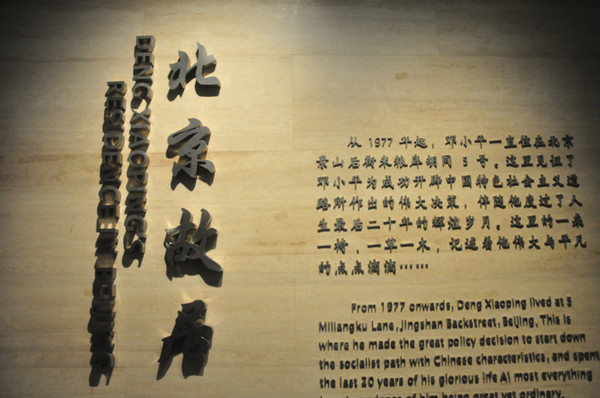 北京故居
DENG XIAOPING'S
RESIDENCE IN BEIJING
从 1977 年起，邓小平一直住在北京
景山后街米粮库胡同 5 号。这里见证了
邓小平为成功开辟中国特色社会主义道
路所作出的伟大决策，伴随他度过了人
生最后二十年的辉煌岁月。这里的一桌
一椅，一草一木，记述着他伟大与平凡
的点点滴滴……
From 1977 onwards, Deng Xiaoping lived at 5
Miliangku Lane, Jingshan Backstreet, Beijing, This is
where he made the great policy decision to start down
the socialist path with Chinese characteristics, and spent
the last 20 years of his glorious life Al most everything
of him being great yet ordinary.